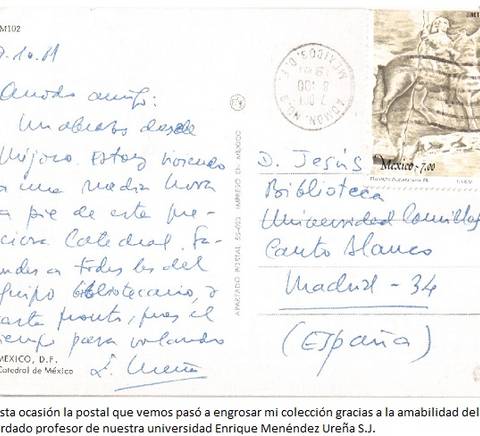 M102
9.10.81
Querido amigo:
Un abrazo desde
Méjico. Estoy viviendo
a una media hora
a pie de esta pre-
ciosa Catedral. Sa-
ludos a todos los del
equipo bibliotecario, y
hasta pronto, pues el
tiempo pasa volando
E. Ureña
MEXICO, D.F.
Catedral de México
APARTADO POSTAL IMPRESO EN MEXICO
MEXICO, D.F.
ADMON. NO.
México·7.00
D. Jesús
Biblioteca
Universidad Comillas
Canto Blanco
Madrid - 34
(España)
sta ocasión la postal que vemos pasó a engrosar mi colección gracias a la amabilidad del
rdado profesor de nuestra universidad Enrique Menéndez Ureña S.J.